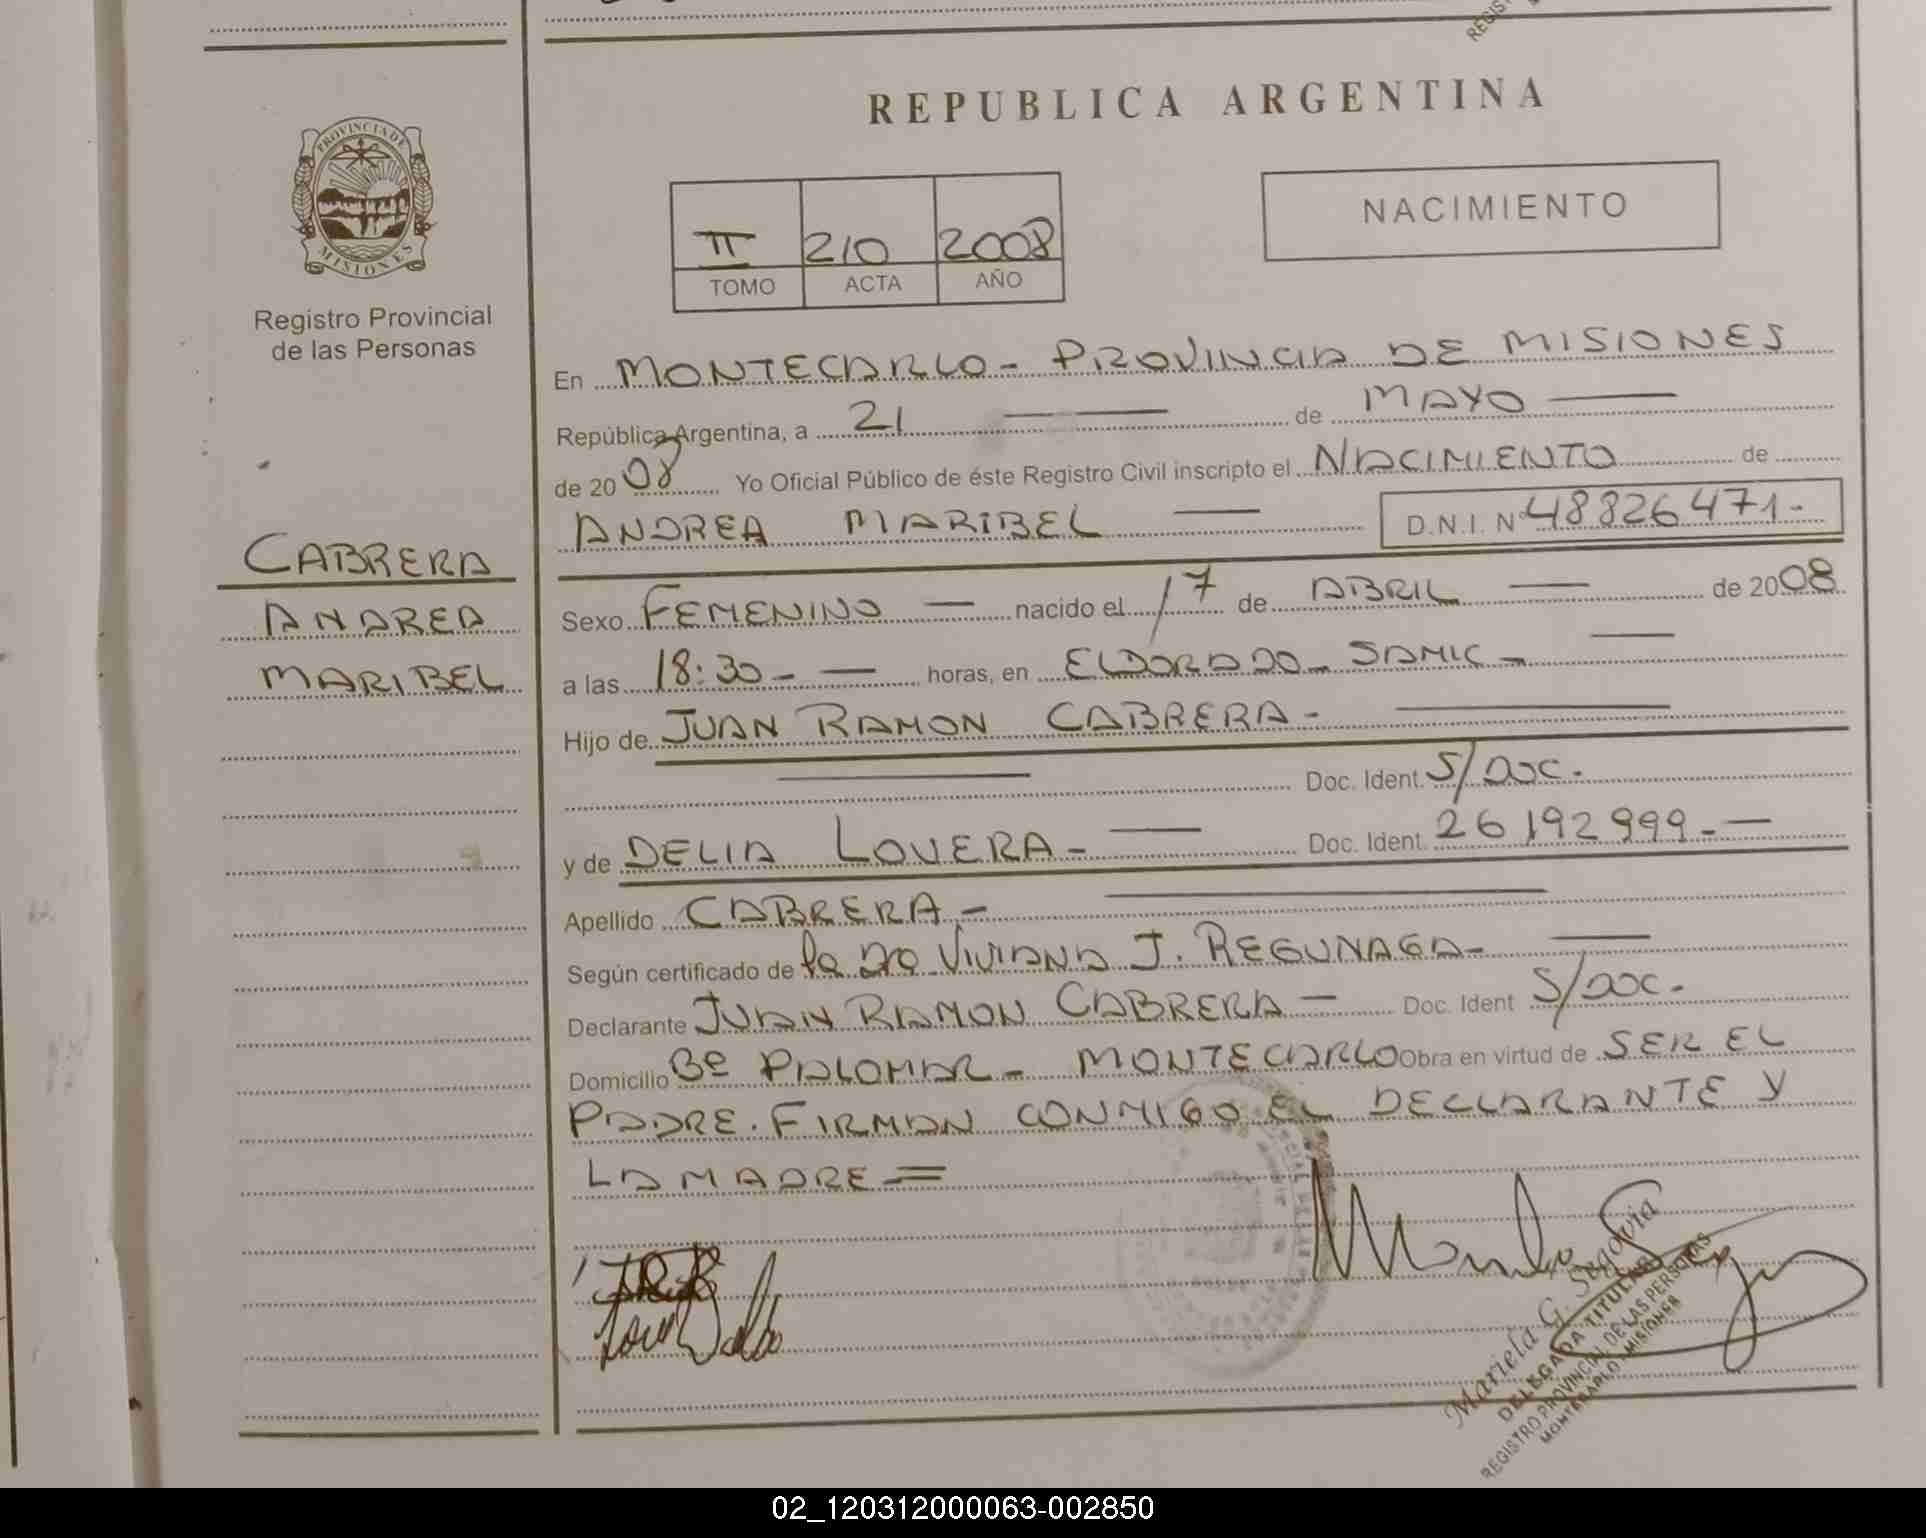 REPUBLICA ARGENTINA
PROVINCIA DE
MISIONES
Registro Provincial
de las Personas
II 210 2008
TOMO ACTA AÑO
NACIMIENTO
En MONTECARLO - PROVINCIA DE MISIONES
República Argentina, a 21 de MAYO
de 2008 Yo Oficial Público de éste Registro Civil inscripto el NACIMIENTO de
ANDREA MARIBEL D.N.I. Nº 48826471-
CABRERA
ANDREA
MARIBEL
Sexo FEMENINO nacido el 17 de ABRIL de 2008
a las 18:30 - horas, en ELDORADO - SAMIC -
Hijo de JUAN RAMON CABRERA -
Doc. Ident. S/DOC.
y de DELIA LOVERA - Doc. Ident. 26192999 -
Apellido CABRERA -
Según certificado de la DRA VIVIANA J. REGUNAGA -
Declarante JUAN RAMON CABRERA - Doc. Ident S/DOC.
Domicilio Bº PALOMAR - MONTECARLO Obra en virtud de SER EL
PADRE. FIRMAN CONMIGO EL DECLARANTE Y
LA MADRE =
Mariela G. Segovia
DELEGADA TITULAR
REGISTRO PROVINCIAL DE LAS PERSONAS
MONTECARLO - MISIONES
02_120312000063-002850